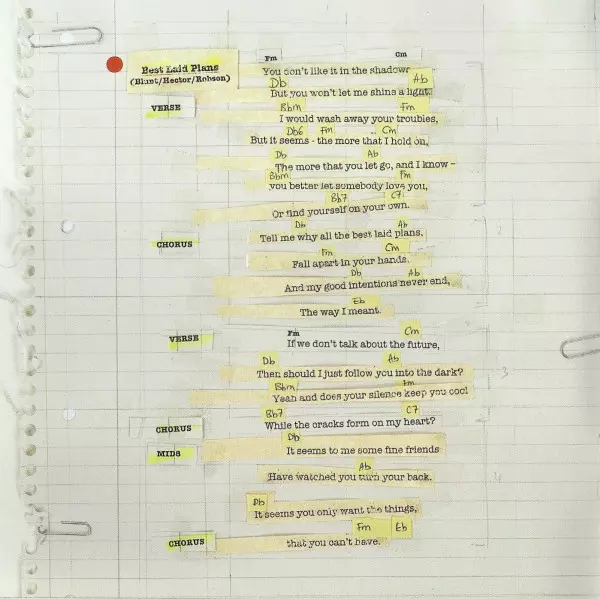 Best Laid Plans
(Blunt/Hector/Robson)
Fm Cm
You don't like it in the shadow
Db Ab
But you won't let me shine a light
VERSE
Bbm Fm
I would wash away your troubles,
Db6 Fm Cm
But it seems - the more that I hold on,
Db Ab
The more that you let go, and I know -
Bbm Fm
you better let somebody love you,
Bb7 C7
Or find yourself on your own.
Db Ab
Tell me why all the best laid plans,
CHORUS
Fm Cm
Fall apart in your hands,
Db Ab
And my good intentions never end,
Eb
The way I meant.
VERSE
Fm Cm
If we don't talk about the future,
Db Ab
Then should I just follow you into the dark?
Bbm Fm
Yeah and does your silence keep you cool
Bb7 C7
While the cracks form on my heart?
CHORUS
Db
It seems to me some fine friends
MID8
Ab
Have watched you turn your back.
Db
It seems you only want the things,
Fm Eb
that you can't have.
CHORUS
2
3
4